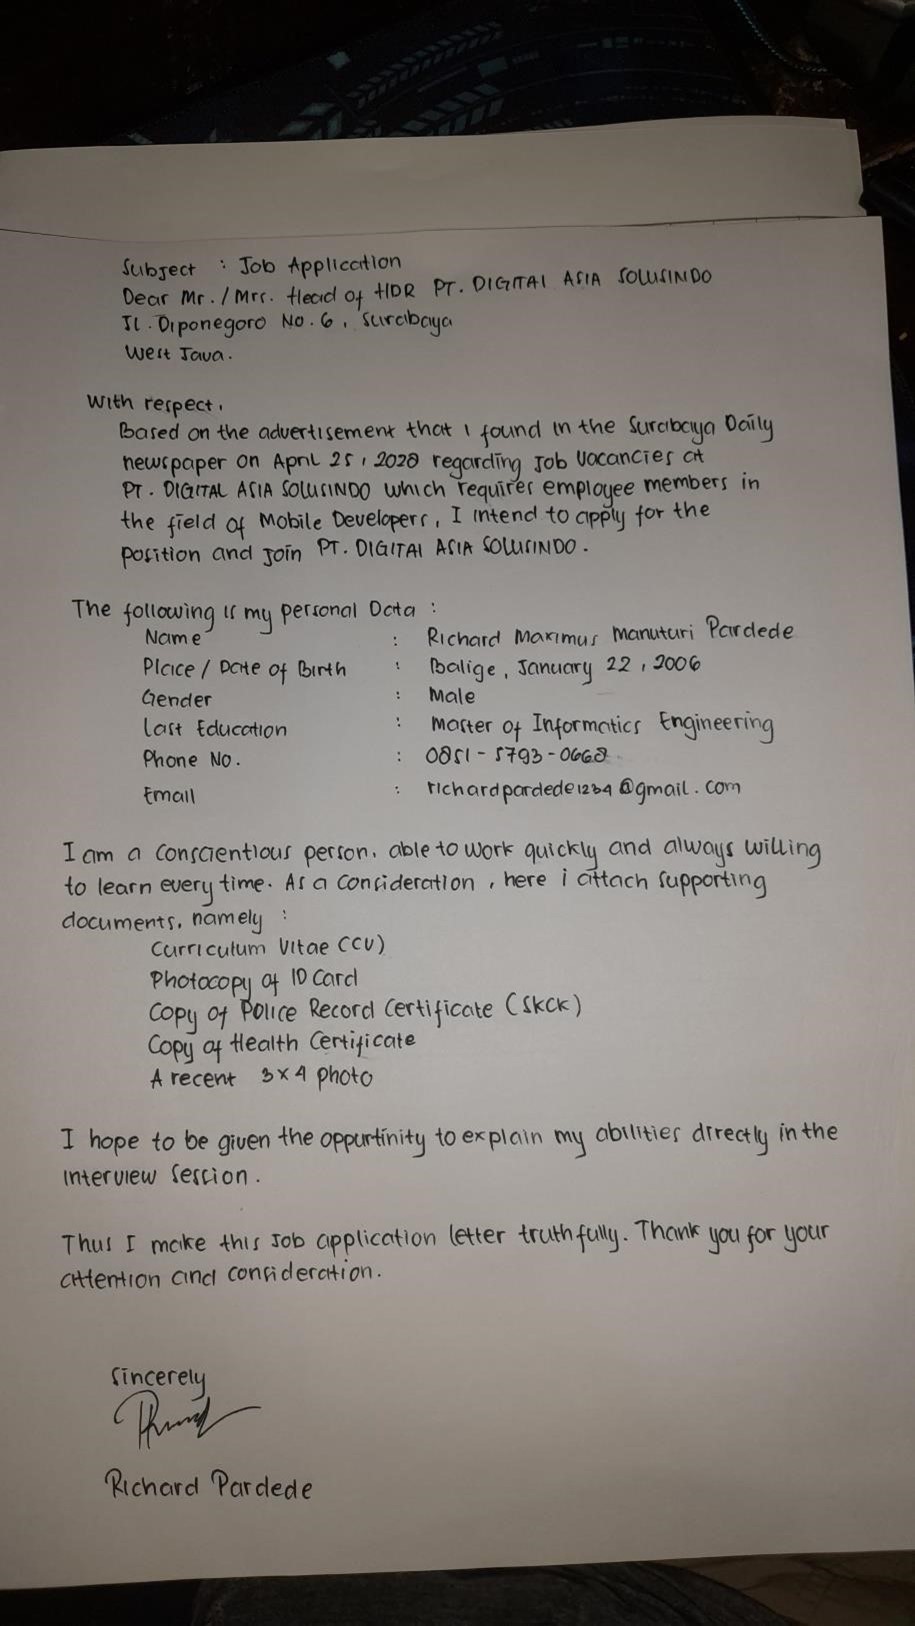 Subject : Job Application
Dear Mr. / Mrs. Head of HDR PT. DIGITAL ASIA SOLUSINDO
Jl. Diponegoro No. 6, Surabaya
West Java.
With respect,
Based on the advertisement that I found in the Surabaya Daily
newspaper on April 25, 2028 regarding Job vacancies at
PT. DIGITAL ASIA SOLUSINDO which requires employee members in
the field of Mobile Developers, I intend to apply for the
position and join PT. DIGITAL ASIA SOLUSINDO.
The following is my personal Data :
Name : Richard Maximus Manuturi Pardede
Place / Date of Birth : Balige, January 22, 2006
Gender : Male
Last Education : Master of Informatics Engineering
Phone No. : 0851 - 5793 - 0668
Email : richardpardede1234@gmail.com
I am a conscientious person, able to work quickly and always willing
to learn every time. As a consideration, here i attach supporting
documents, namely :
Curriculum Vitae (CV)
Photocopy of ID Card
Copy of Police Record Certificate (SKCK)
Copy of Health Certificate
A recent 3x4 photo
I hope to be given the oppurtinity to explain my abilities directly in the
interview session.
Thus I make this Job application letter truthfully. Thank you for your
attention and consideration.
Sincerely
Richard Pardede